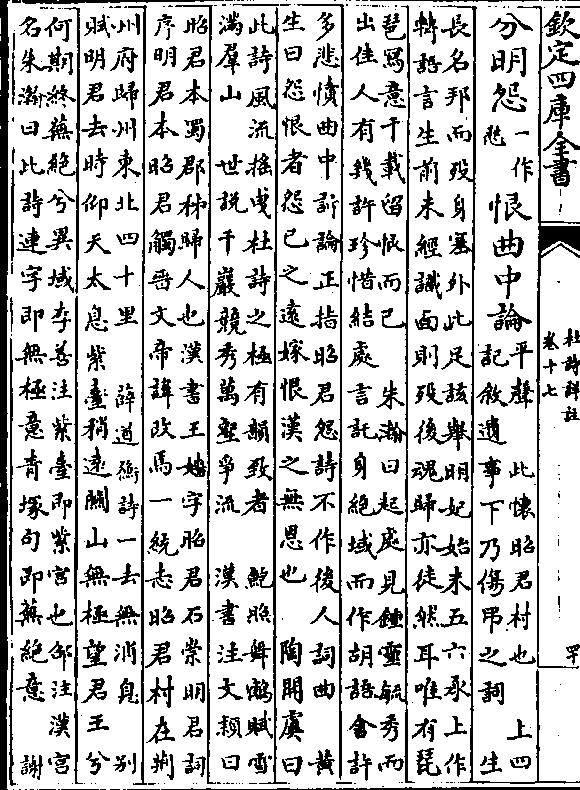 欽定四庫全書
杜詩詳註
卷十七
罕
分明怨一作愁恨曲中論平聲 此懷昭君村也 上四
記敘遺事下乃傷弔之詞 生
長名邦而殁身塞外此足該舉明妃始末五六承上作
轉語言生前未經識面則殁後魂歸亦徒然耳唯有琵
琶寫意千載留恨而已 朱瀚曰起處見鍾靈毓秀而
出佳人有幾許珍惜結處言託身絕域而作胡語會許
多悲憤曲中訴論正指昭君怨詩不作後人詞曲 黃
生曰怨恨者怨己之遠嫁恨漢之無恩也 陶開虞曰
此詩風流搖曳杜詩之極有韻致者 鮑照舞鶴賦雪
滿羣山 世說千巖競秀萬壑爭流 漢書注文穎曰
昭君本蜀郡秭歸人也漢書王嬙字昭君石崇明君詞
序明君本昭君觸晉文帝諱改焉一統志昭君村在荊
州府歸州東北四十里 薛道衡詩一去無消息 別
賦明君去時仰天太息紫臺稍遠關山無極望君王兮
何期終蕪絕兮異域李善注紫臺即紫宮也邵注漢宮
名朱瀚曰此詩連字即無極意青塚句即蕪絕意 謝